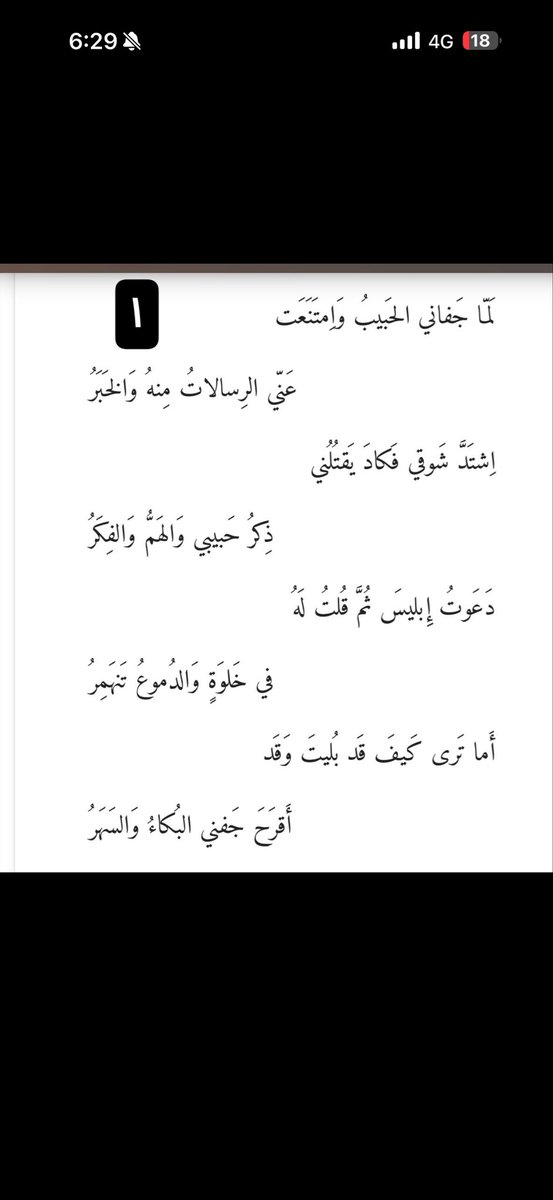 6:29
4G 18
١
لَمّا جَفاني الحَبيبُ وَاِمتَنَعَت
عَنّي الرِسالاتُ مِنهُ وَالخَبَرُ
اِشتَدَّ شَوقي فَكادَ يَقتُلُني
ذِكرُ حَبيبي وَالهَمُّ وَالفِكَرُ
دَعَوتُ إِبليسَ ثُمَّ قُلتُ لَهُ
في خَلوَةٍ وَالدُموعُ تَنهَمِرُ
أَما تَرى كَيفَ قَد بُليتَ وَقَد
أَقرَحَ جَفني البُكاءُ وَالسَهَرُ